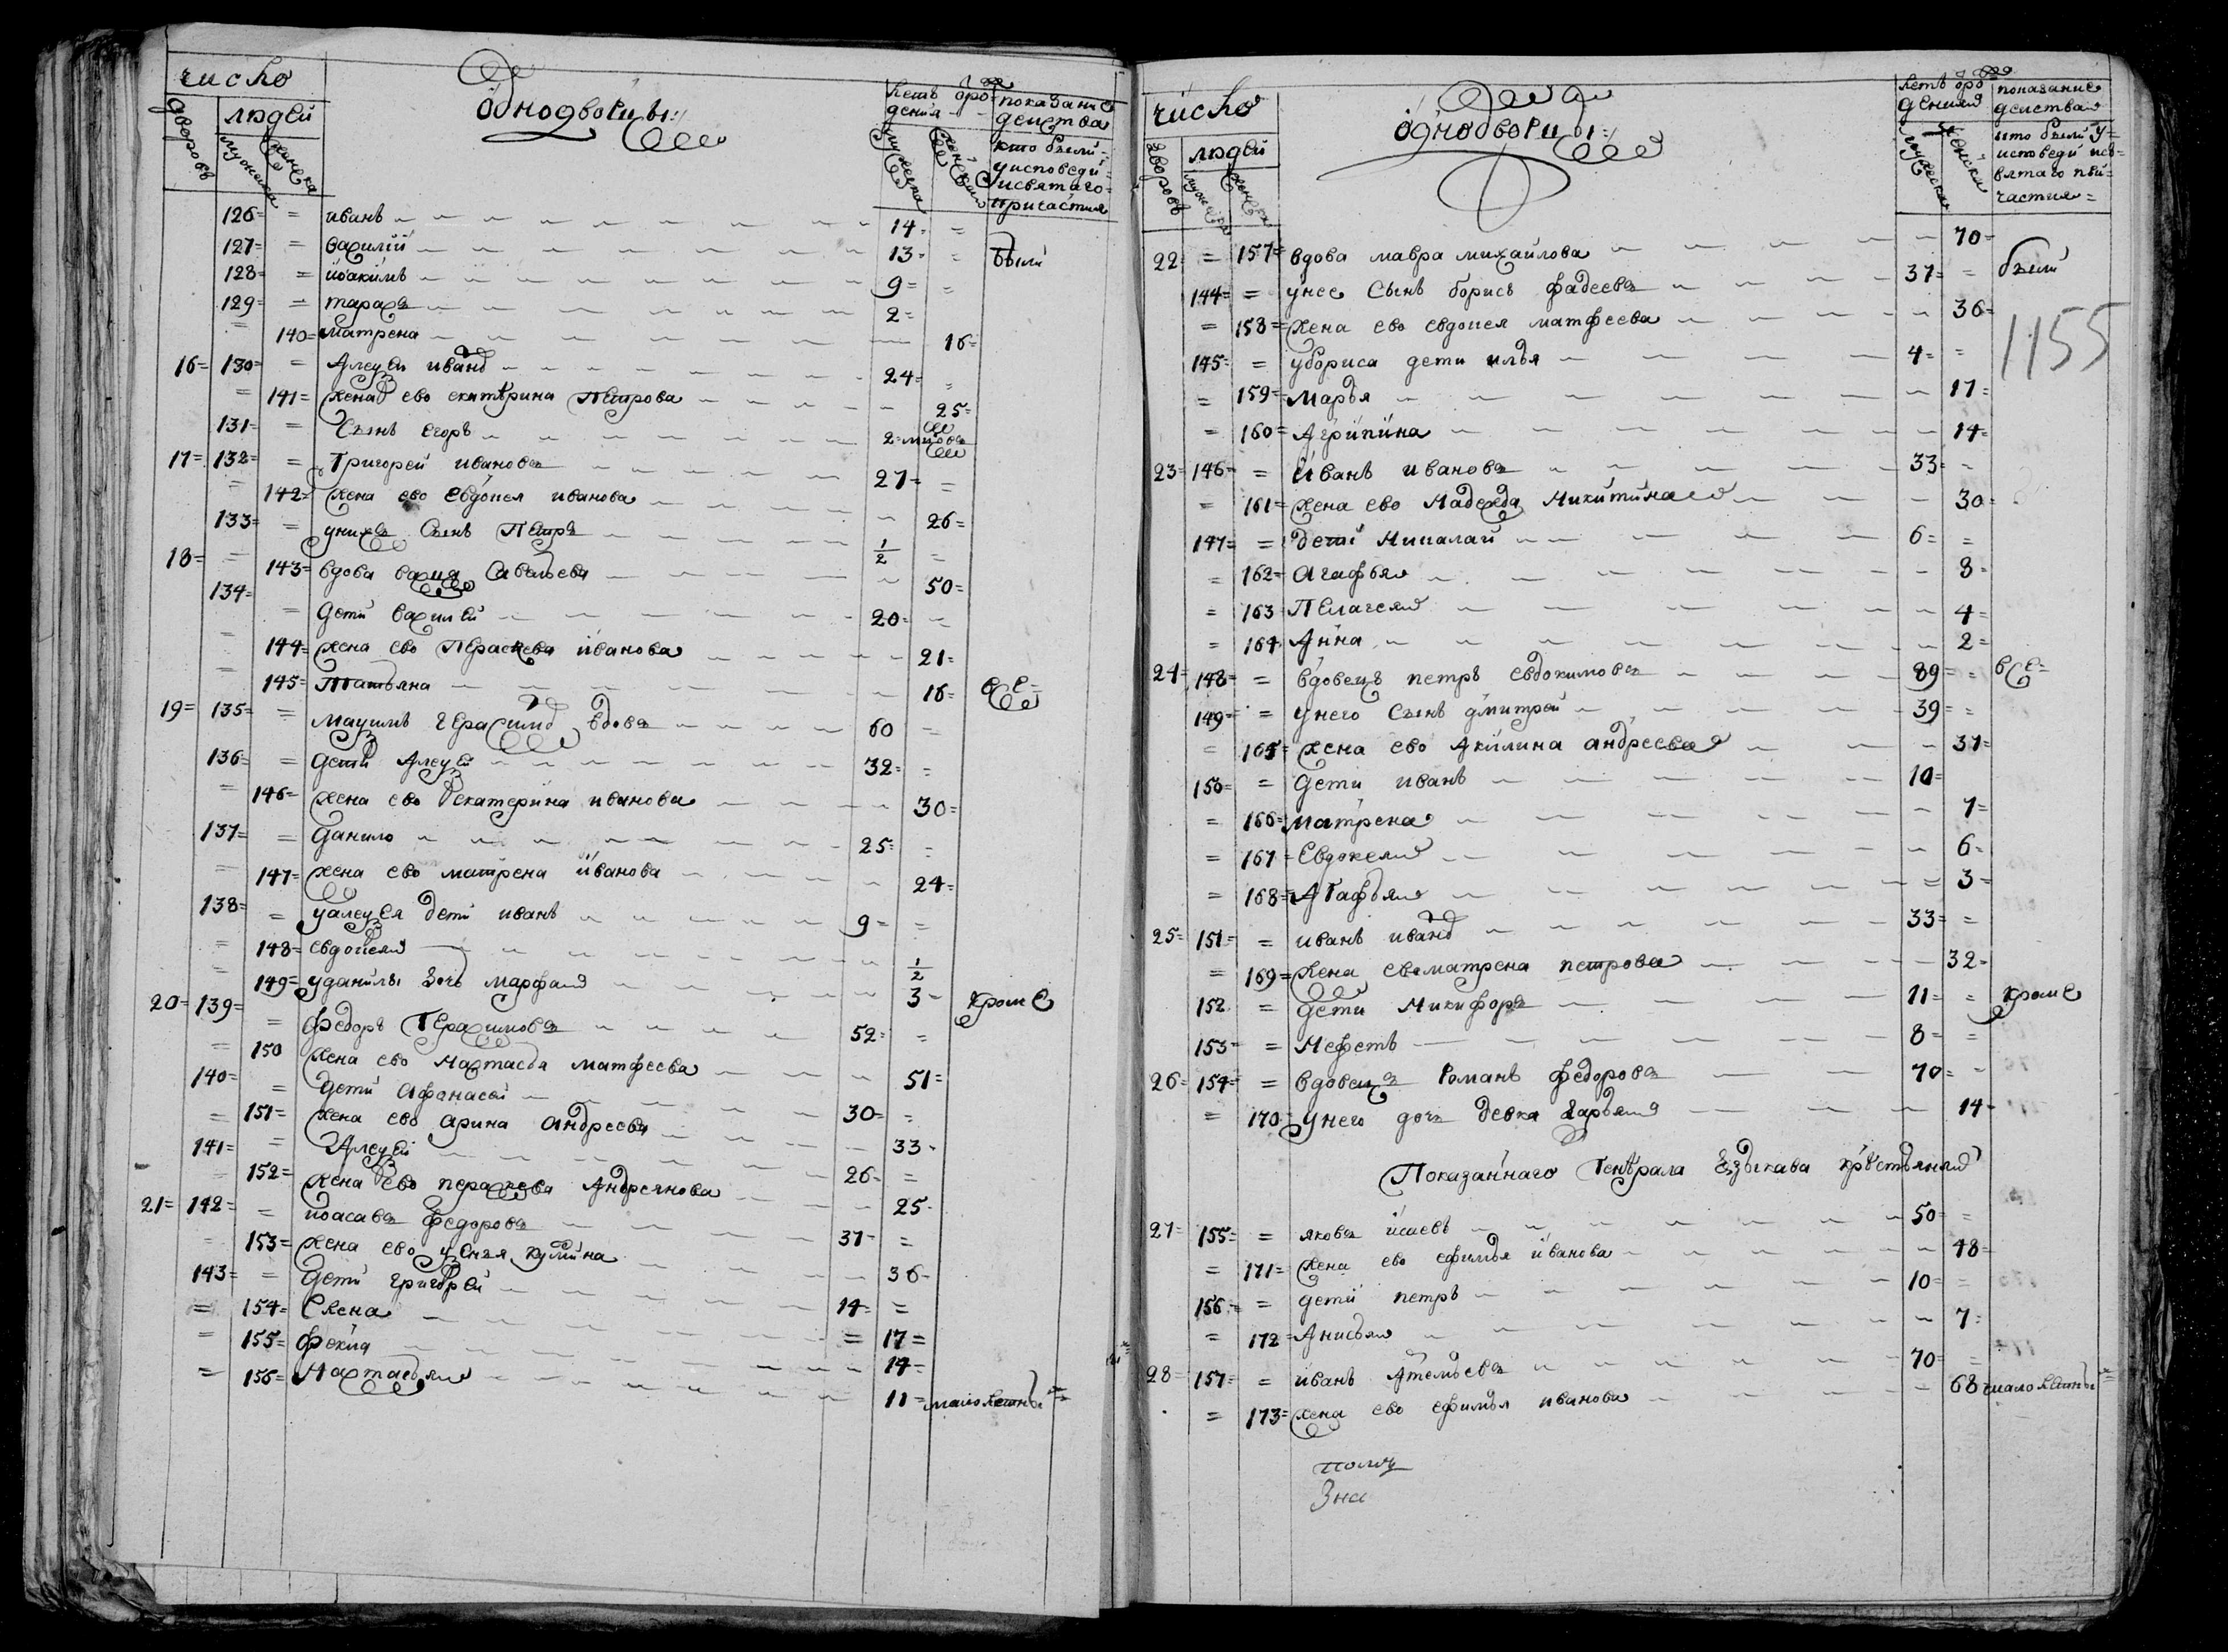 число
людей
дворовъ
мужеска
женска
однодворцы
летъ о рож
дения
мужеска
женска
показание
действа
кто были
у исповеди
и святаго
причастия
126= = иванъ 14= =
127= = василий 13= = были
128= = иоакимъ 9= =
129= = тарасъ 2=
= 140= матрена 16=
16= 130= = Алеѯей иванов 24= =
= 141= жена ево екатерина Петрова 25=
131= = Сынъ егоръ 2=
17= 132= = Григорей ивановъ 27= =
= 142= жена ево евдокея иванова 26=
133= = у нихъ Сынъ Петръ 1/2 =
18= = 143= вдова Савельева 50=
134= = дети василей 20= =
= 144= жена ево Пераскева иванова 21=
= 145= Татьяна 16= все=
19= 135= = Маѯимъ Герасимов вдовъ 60 =
136= = дети Алеѯей 32= =
= 146= жена ево екатерина иванова 30=
137= = данило 25= =
= 147= жена ево матрена иванова 24=
138= = у алеѯея дети иванъ 9= =
= 148= евдокея 1/2
= 149= у данилы дочь марфа 3= кроме
20= 139= = федоръ Герасимовъ 52= =
= 150 жена ево Настасья матфеева 51=
140= = дети Афанасей 30= =
= 151= жена ево арина андреева 33=
141= = Алеѯей 26= =
= 152= жена ево пераскева Андреянова 25=
21= 142= = иоасавъ федоровъ 37= =
= 153= жена ево 36=
143= = дети григорей 14= =
= 154= елена = 17=
= 155= фекла 14=
= 156= Настасья 11= малолетны=
число
людей
дворовъ
мужеска
женска
однодворцы
летъ о рож
дения
мужеска
женска
показание
действа
кто были у
исповеди и св
ятаго при
частия=
22= = 157= вдова мавра михайлова 70=
144= = у нее Сынъ борисъ фадеевъ 37= = были
= 158= жена ево евдокея матфеева 36=
1155
145= = у бориса дети илья 4= =
= 159= Марья 17=
= 160= Агрипина 14=
23= 146= = иванъ ивановъ 33= =
= 161= жена ево Надежда Никитина 30=
147= = дети Николай 6= =
= 162= Агафья 8=
= 163 Пелагея 4=
= 164 Анна 2=
24= 148= = вдовецъ петръ евдокимовъ 89= = все=
149= = у него сынъ дмитрей 39= =
= 165= жена ево Акилина андреева 37=
150= = дети иванъ 10=
= 166= матрена 7=
= 167= Евдокея 6=
= 168= Агафья = 3=
25= 151= = иванъ иванов 33= =
= 169= жена ево матрена петрова 32=
152 = дети Никифоръ 11= = кроме
153= = Мефеть 8= =
26= 154= = вдовецъ Романъ федоровъ 70= =
= 170= у него дочь девка дарья 14=
Показаннаго Генерала Езыкава крестьяня
27= 155= = яковъ исаевъ 50= =
= 171= жена ево ефимья иванова 48=
156= = дети петръ 10= =
= 172= Анисья 7=
28= 157= = иванъ Артемьевъ 70= =
= 173= жена ево ефимья иванова 68 малолетны=